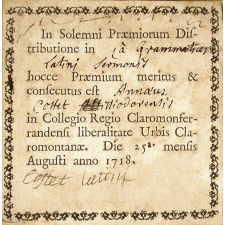 In Solemni Præmiorum Dis-
tributione in 1â Grammatices
Latini Sermonis
hocce Præmium meritus &
consecutus est Annæus
Costet
in Collegio Regio Claromonfer-
randensi liberalitate Urbis Cla-
romontanæ. Die 25ª mensis
Augusti anno 1718.
Costet